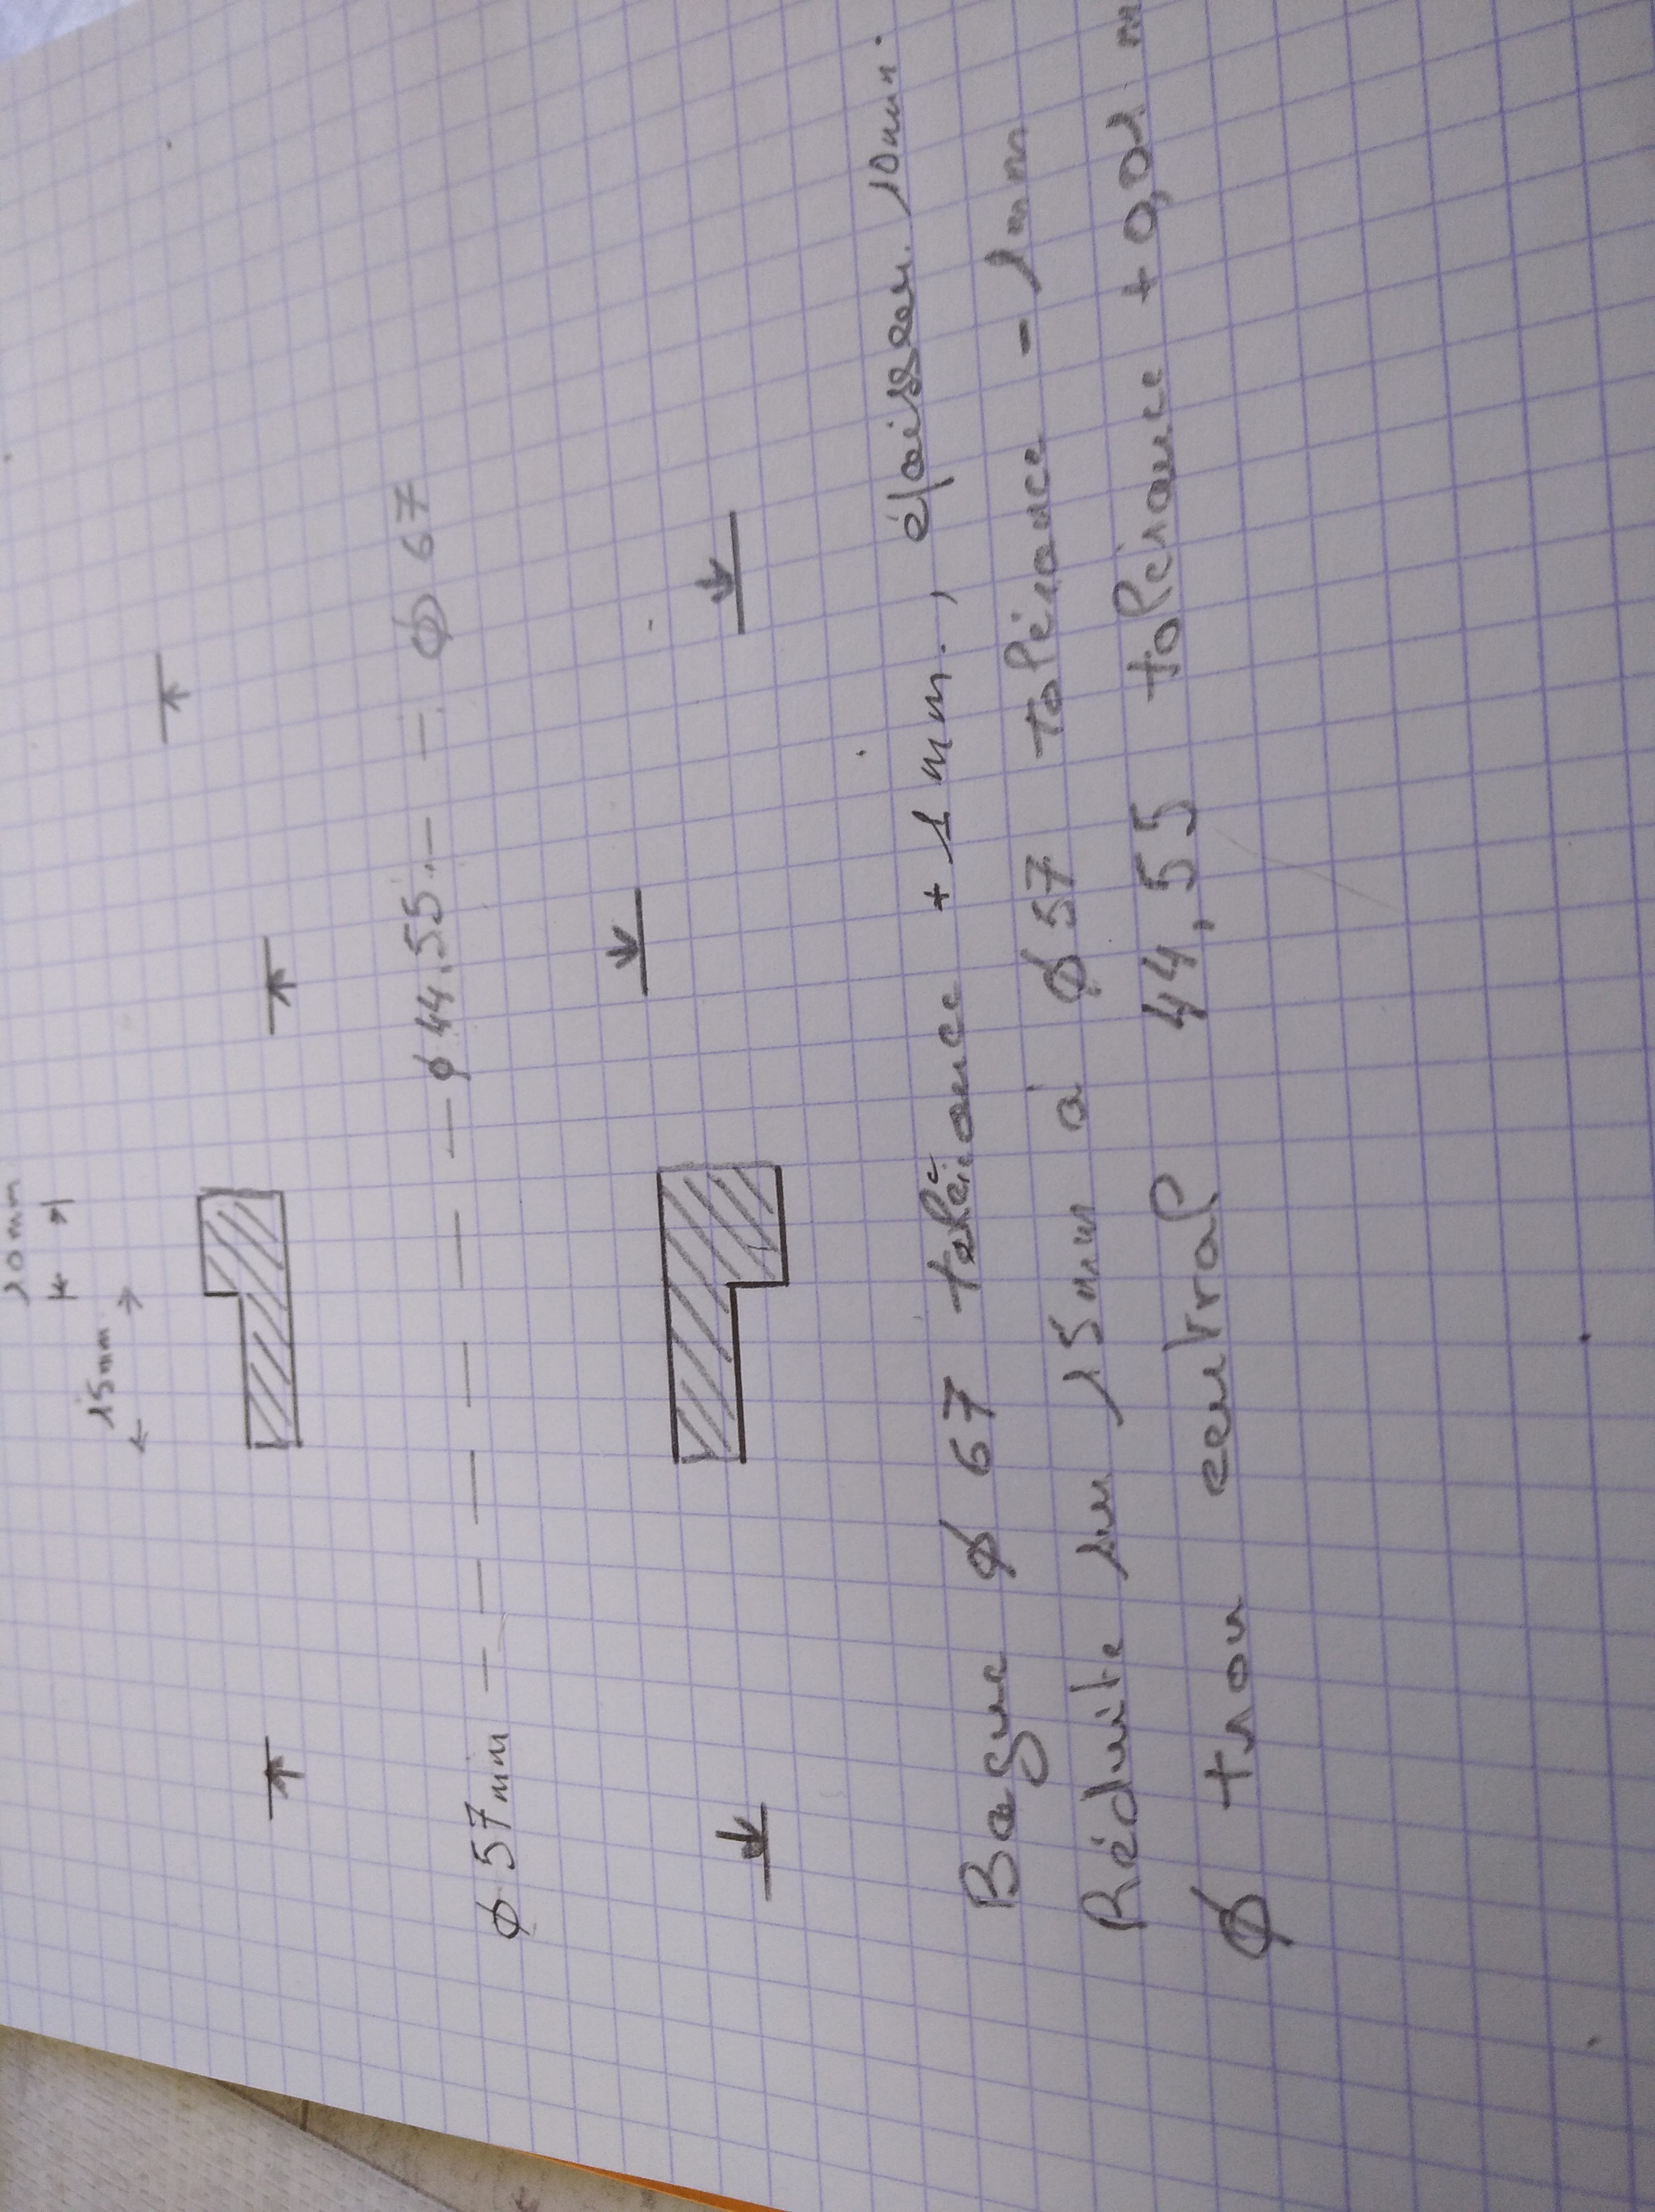 10mm
15mm
Ø 57 mm Ø 44.55 Ø 67
Bague Ø 67 tolérance + 1 mm. , épaisseur 10mm.
Réduite sur 15 mm à Ø 57 tolérance - 1 mm
Ø trou central 44,55 tolérance + 0,01 m